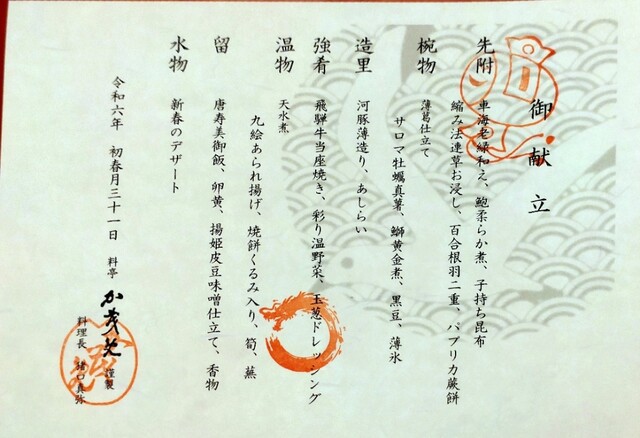 御献立
先附
車海老緑和え、鮑柔らか煮、子持ち昆布
縮み法連草お浸し、百合根羽二重、パプリカ蕨餅
椀物
薄葛仕立て
サロマ牡蠣真薯、鰤黄金煮、黒豆、薄氷
造里
河豚薄造り、あしらい
強肴
飛騨牛当座焼き、彩り温野菜、玉葱ドレッシング
温物
天水煮
九絵あられ揚げ、焼餅くるみ入り、筍、蕪
留
唐寿美御飯、卵黄、揚姫皮豆味噌仕立て、香物
水物
新春のデザート
令和六年 初春月三十一日 料亭
謹製
料理長 猪口真弥